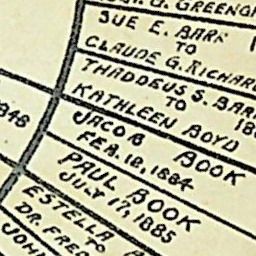 SUE E. BARR
TO
CLAUDE G. RICHAR
THADDEUS S. BAR
TO 188
KATHLEEN BOYD
JACOB BOOK
FEB. 18, 1884
PAUL BOOK
JULY 17, 1885
ESTELLA
TO
DR. FRED
JOHN